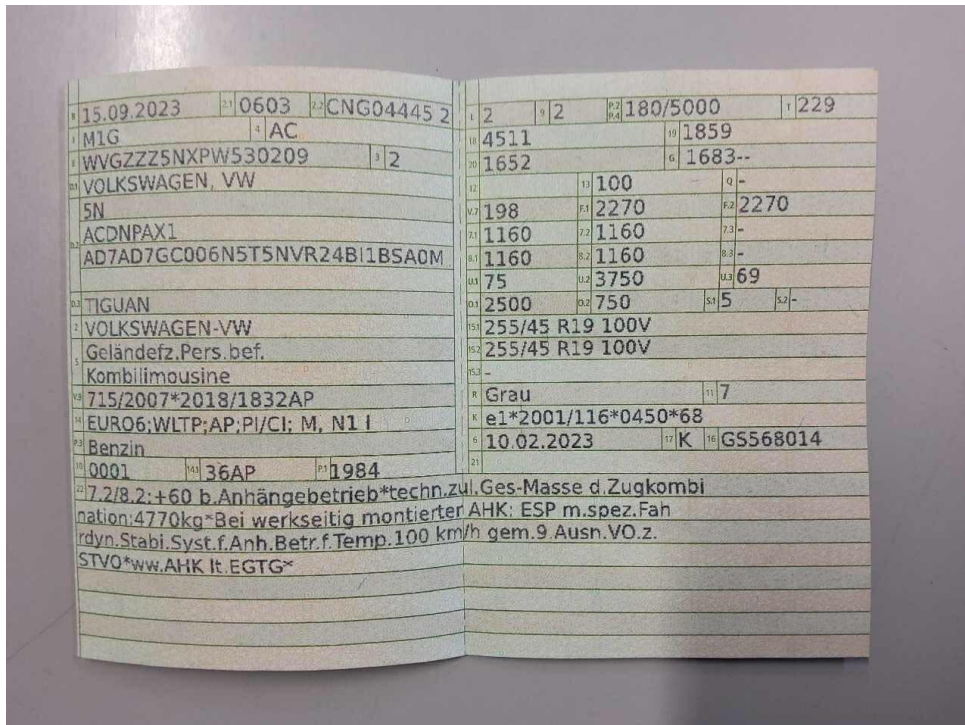 B 15.09.2023 2.1 0603 2.2 CNG04445 2
J M1G 4 AC
E WVGZZZ5NXPW530209 3 2
D.1 VOLKSWAGEN, VW
5N
D.2 ACDNPAX1
AD7AD7GC006N5T5NVR24BI1BSA0M
D.3 TIGUAN
2 VOLKSWAGEN-VW
5 Geländefz.Pers.bef.
Kombilimousine
V.9 715/2007*2018/1832AP
14 EURO6;WLTP;AP;PI/CI; M, N1 I
P.3 Benzin
10 0001 14.1 36AP P.1 1984
L 2 9 2 P.2 P.4 180/5000 T 229
18 4511 19 1859
20 1652 G 1683--
12 13 100 Q -
V.7 198 F.1 2270 F.2 2270
7.1 1160 7.2 1160 7.3 -
8.1 1160 8.2 1160 8.3 -
U.1 75 U.2 3750 U.3 69
O.1 2500 O.2 750 S.1 5 S.2 -
15.1 255/45 R19 100V
15.2 255/45 R19 100V
15.3 -
R Grau 11 7
K e1*2001/116*0450*68
6 10.02.2023 17 K 16 GS568014
21
22 7.2/8.2:+60 b.Anhängebetrieb*techn.zul.Ges-Masse d.Zugkombi
nation:4770kg*Bei werkseitig montierter AHK: ESP m.spez.Fah
rdyn.Stabi.Syst.f.Anh.Betr.f.Temp.100 km/h gem.9.Ausn.VO.z.
STVO*ww.AHK lt.EGTG*